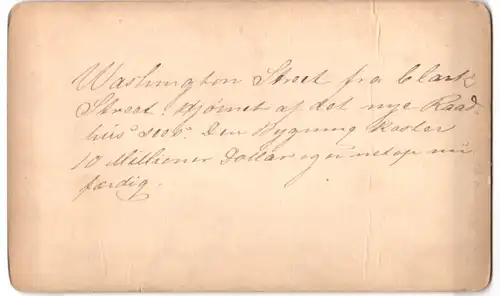 Washington Street fra Clark
Street. Hjørnet af det nye Raad-
hus sees. Den Bygning koster
10 Millioner Dollar og er netop nu
færdig.